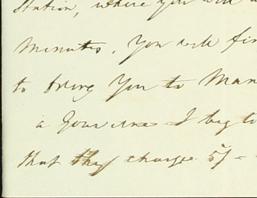 Station, where you will
minutes. You will fin
to bring you to Man
a
I beg to
that they charge 5/-